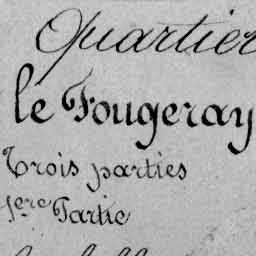 Quartier
le Fougeray
Trois parties
1ere Partie